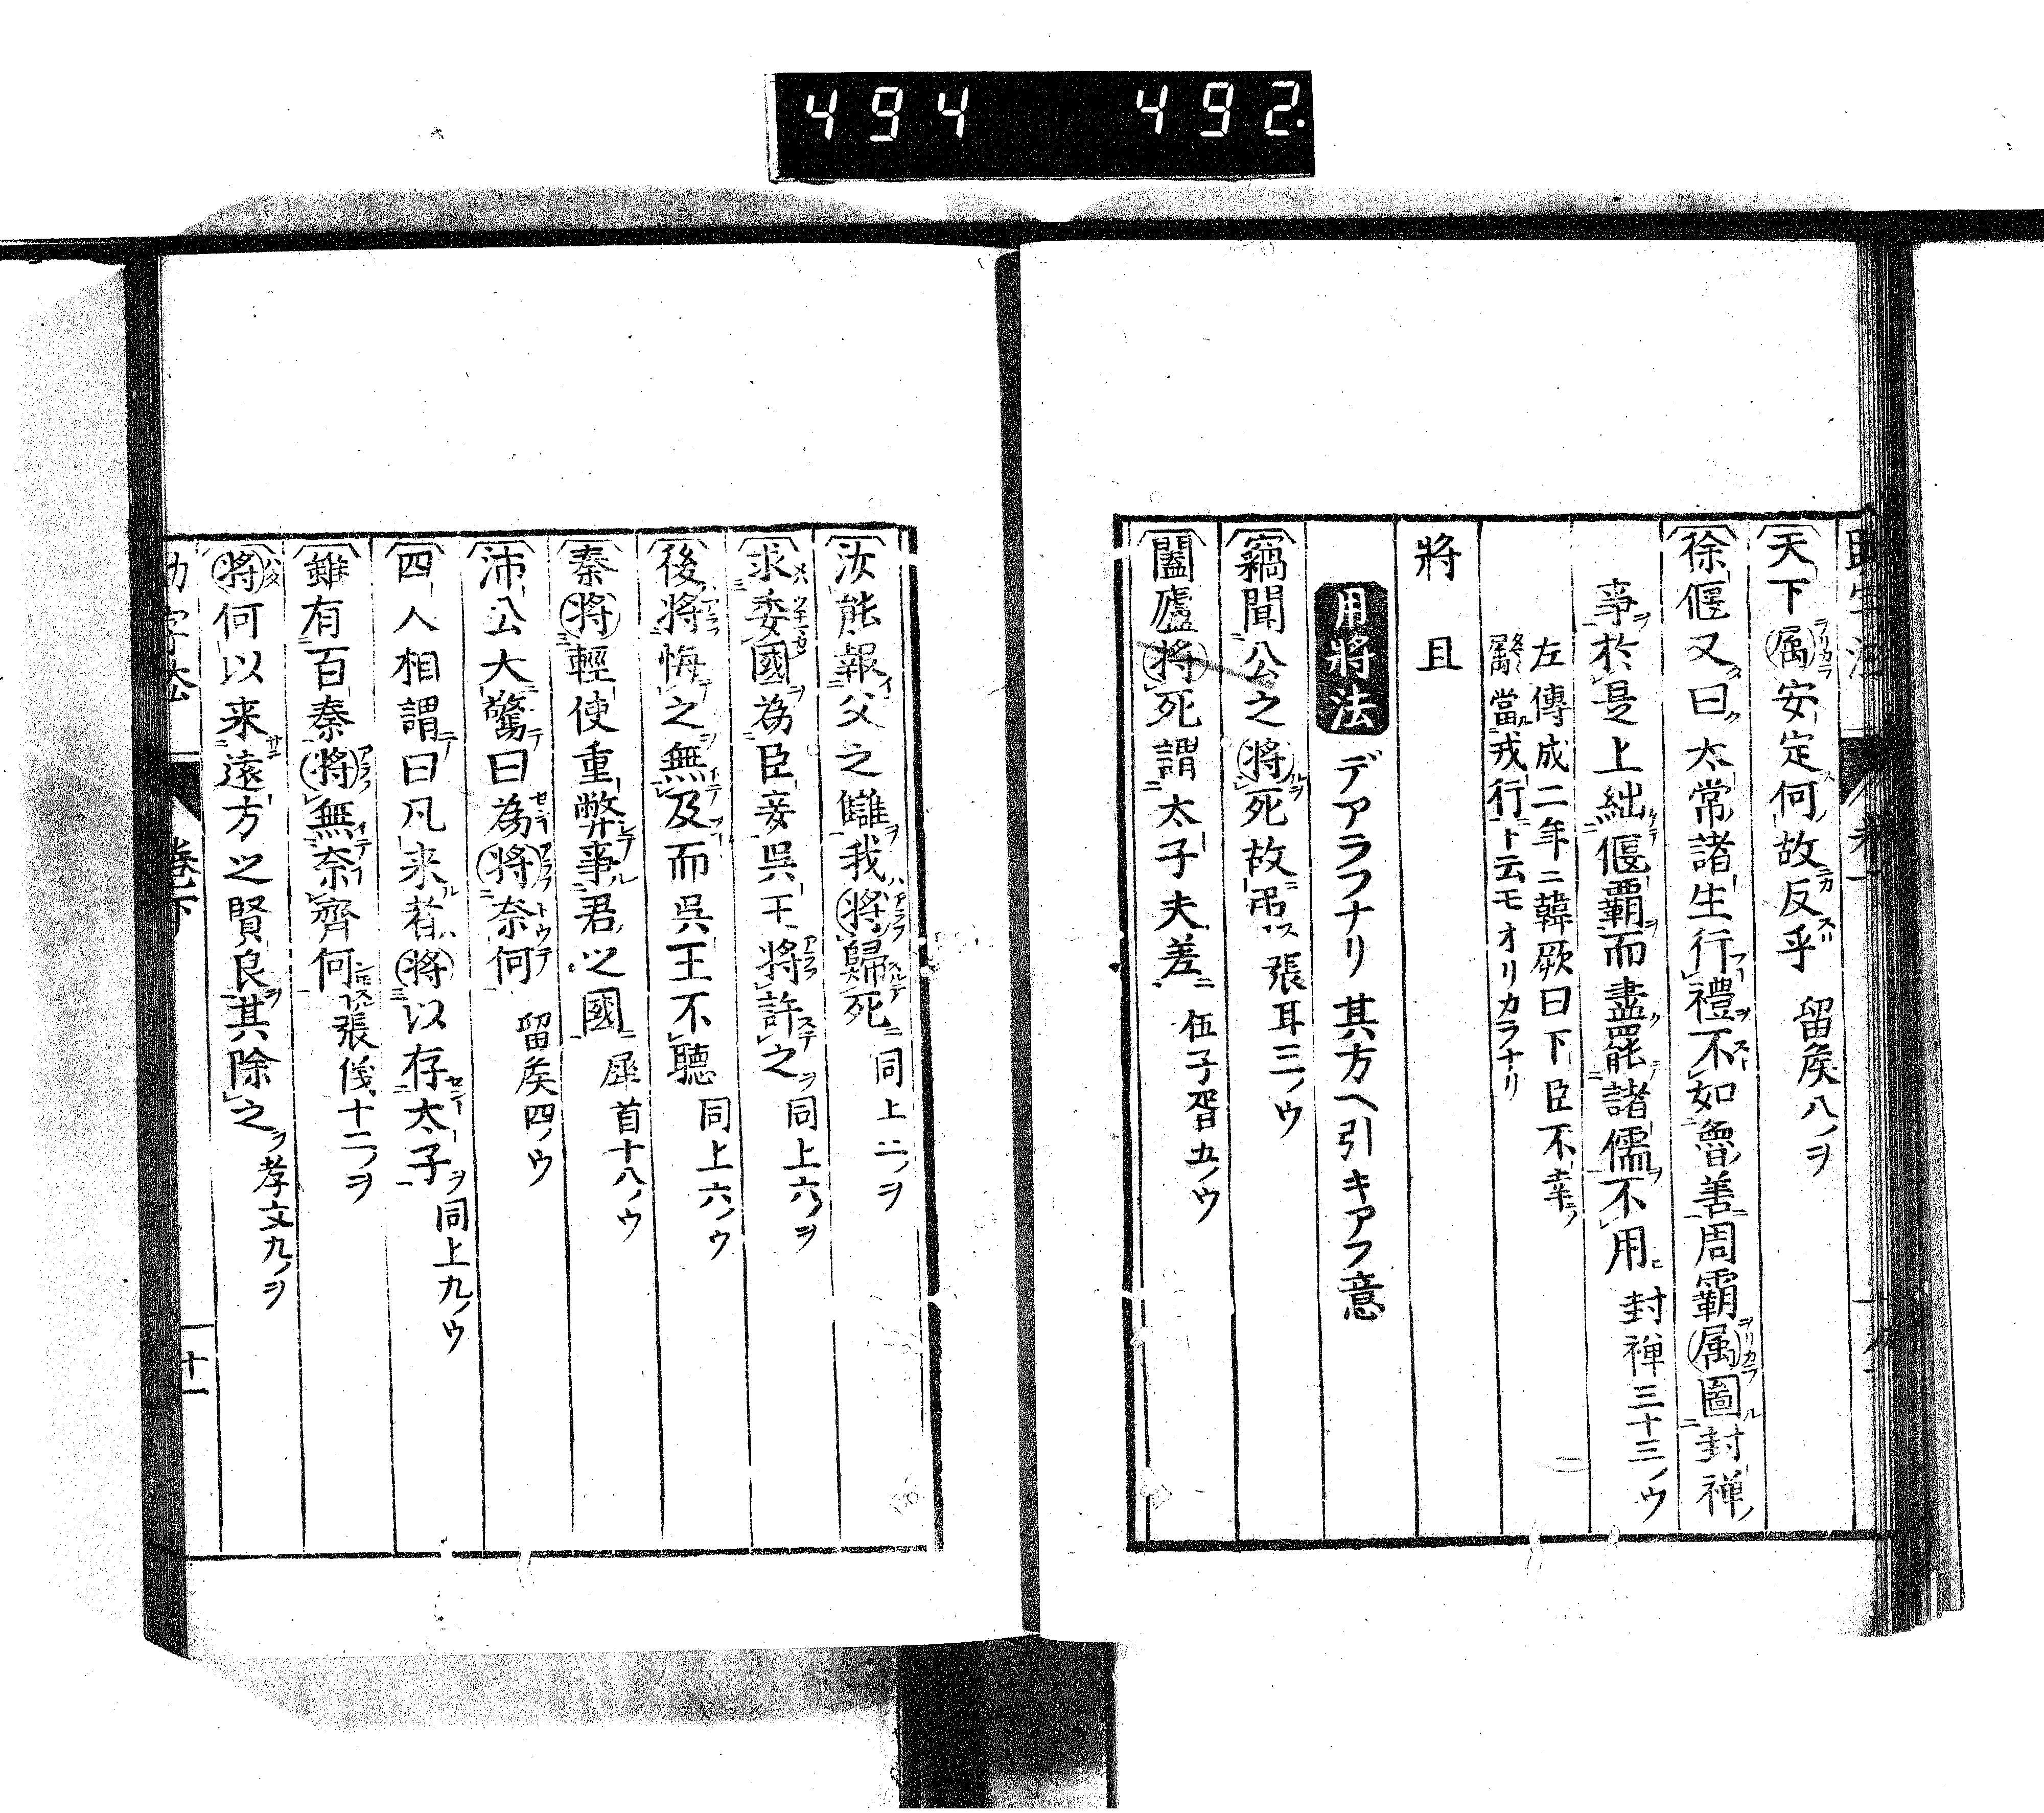 494 492
天下属安定何故反乎 留矦八ノヲ
徐偃又曰太常諸生行禮不如魯善周霸属圖封禅
事於是上絀偃霸而盡罷諸儒不用 封禅三十三ノウ
左傳成二年ニ韓厥曰下臣不幸
属當戎行ト云モオリカラナリ
將 且
用將法 デアラフナリ其方ヘ引キアフ意
竊聞公之將死故弔 張耳三ノウ
闔廬將死謂太子夫差 伍子胥五ノウ
汝能報父之讎我將歸死 同上二ノヲ
求委國為臣妾呉王將許之 同上六ノヲ
後將悔之無及而呉王不聽 同上六ノウ
秦將輕使重弊事君之國 犀首十八ノウ
沛公大驚曰為將奈何 留矦四ノウ
四人相謂曰凡来者將以存太子 同上九ノウ
雖有百秦將無奈齊何 張儀十二ノヲ
將何以来遠方之賢良其除之 孝文九ノヲ
助字法 巻下 十一